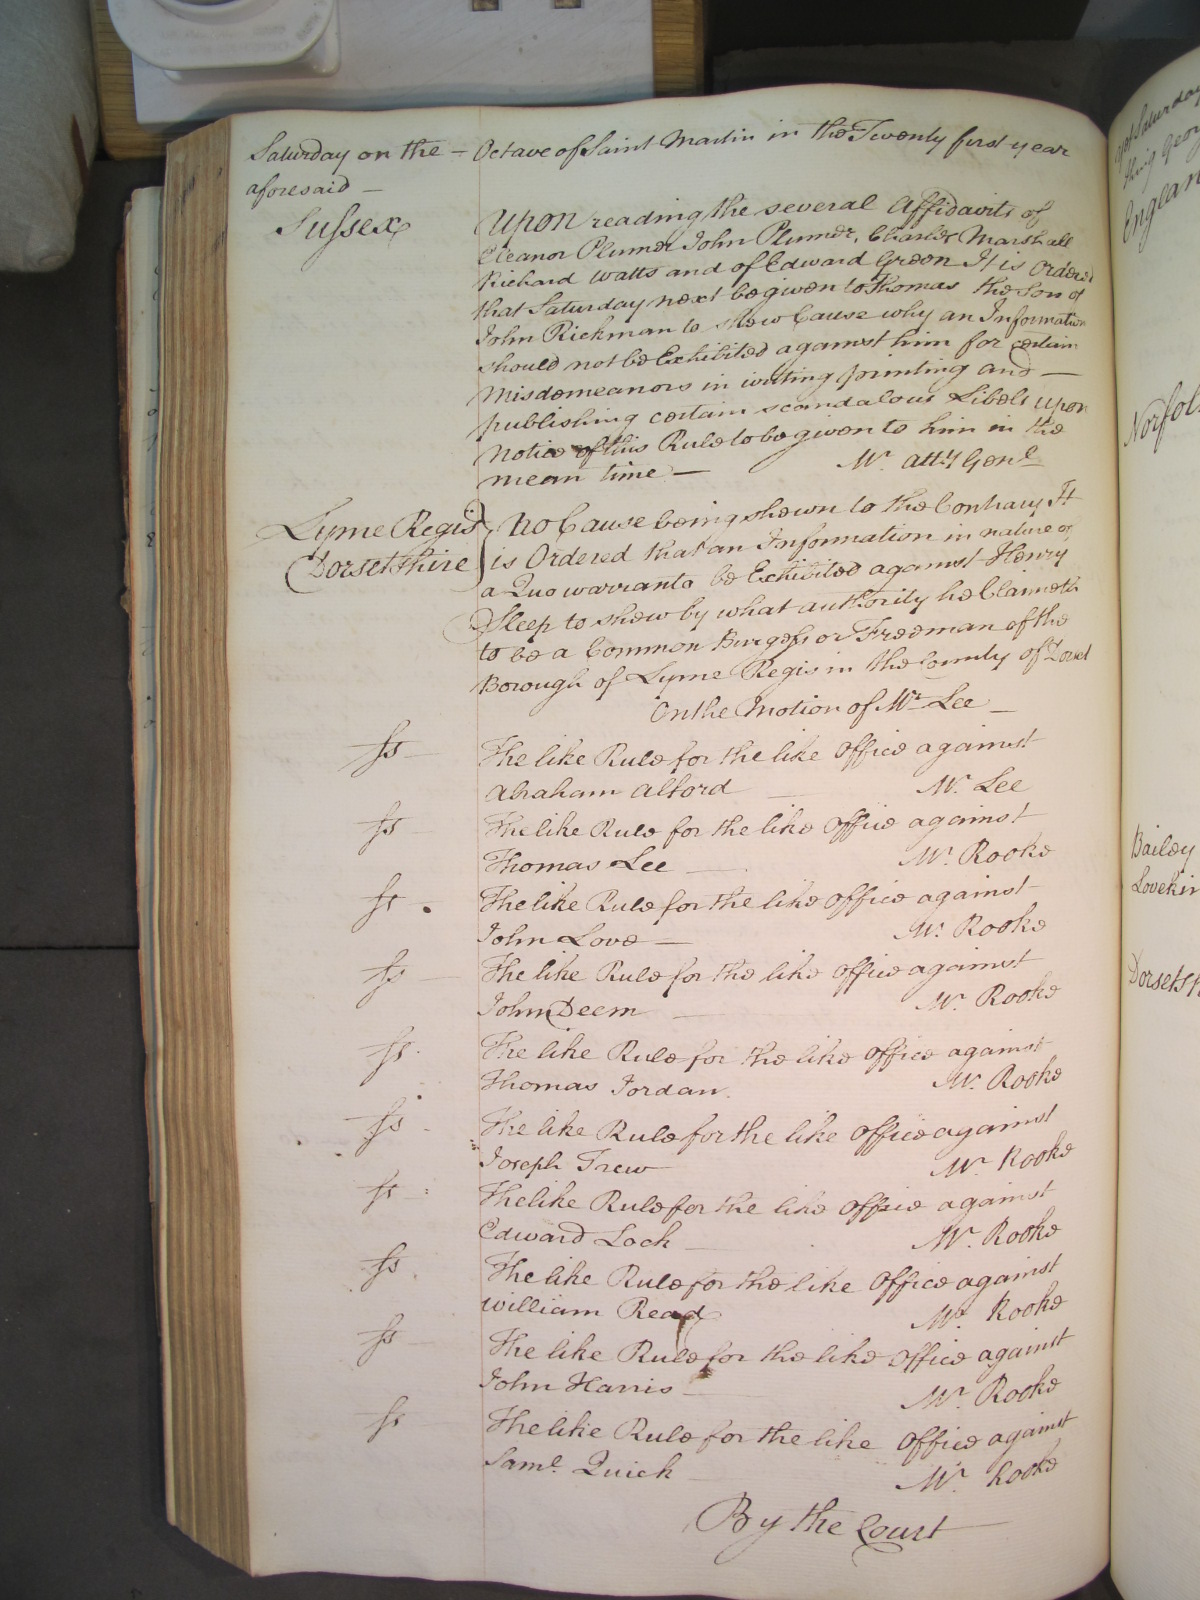 Saturday on the – Octave of Saint Martin in the Twenty first year
aforesaid –
Sussex
Upon reading the several Affidavits of
Eleanor Plumer John Plumer, Charles Marshall
Richard Watts and of Edward Green It is Ordered
that Saturday next be given to Thomas the Son of
John Rickman to shew Cause why an Information
should not be Exhibited against him for certain
Misdemeanors in writing printing and –
publishing certain scandalous Libels upon
Notice of this Rule to be given to him in the
mean time – Mr. Atty Genl
Lyme Regis
Dorsetshire
No Cause being shewn to the Contrary It
is Ordered that an Information in nature of
a Quo warranto be Exhibited against Henry
Sleep to shew by what authority he Claimeth
to be a Common Burgess or Freeman of the
Borough of Lyme Regis in the County of Dorset
On the Motion of Mr. Lee –
ss The like Rule for the like Office against
Abraham Alford – Mr. Lee
ss The like Rule for the like Office against
Thomas Lee – Mr. Rooke
ss The like Rule for the like Office against
John Love – Mr. Rooke
ss The like Rule for the like Office against
John Deem – Mr. Rooke
ss The like Rule for the like Office against
Thomas Jordan. Mr. Rooke
ss The like Rule for the like Office against
Joseph Trew Mr. Rooke
ss The like Rule for the like Office against
Edward Lock – Mr. Rooke
ss The like Rule for the like Office against
William Read Mr. Rooke
ss The like Rule for the like Office against
John Harris – Mr. Rooke
ss The like Rule for the like Office against
Saml. Quick – Mr. Rooke
By the Court
Norfol
Bailey
Lovekin